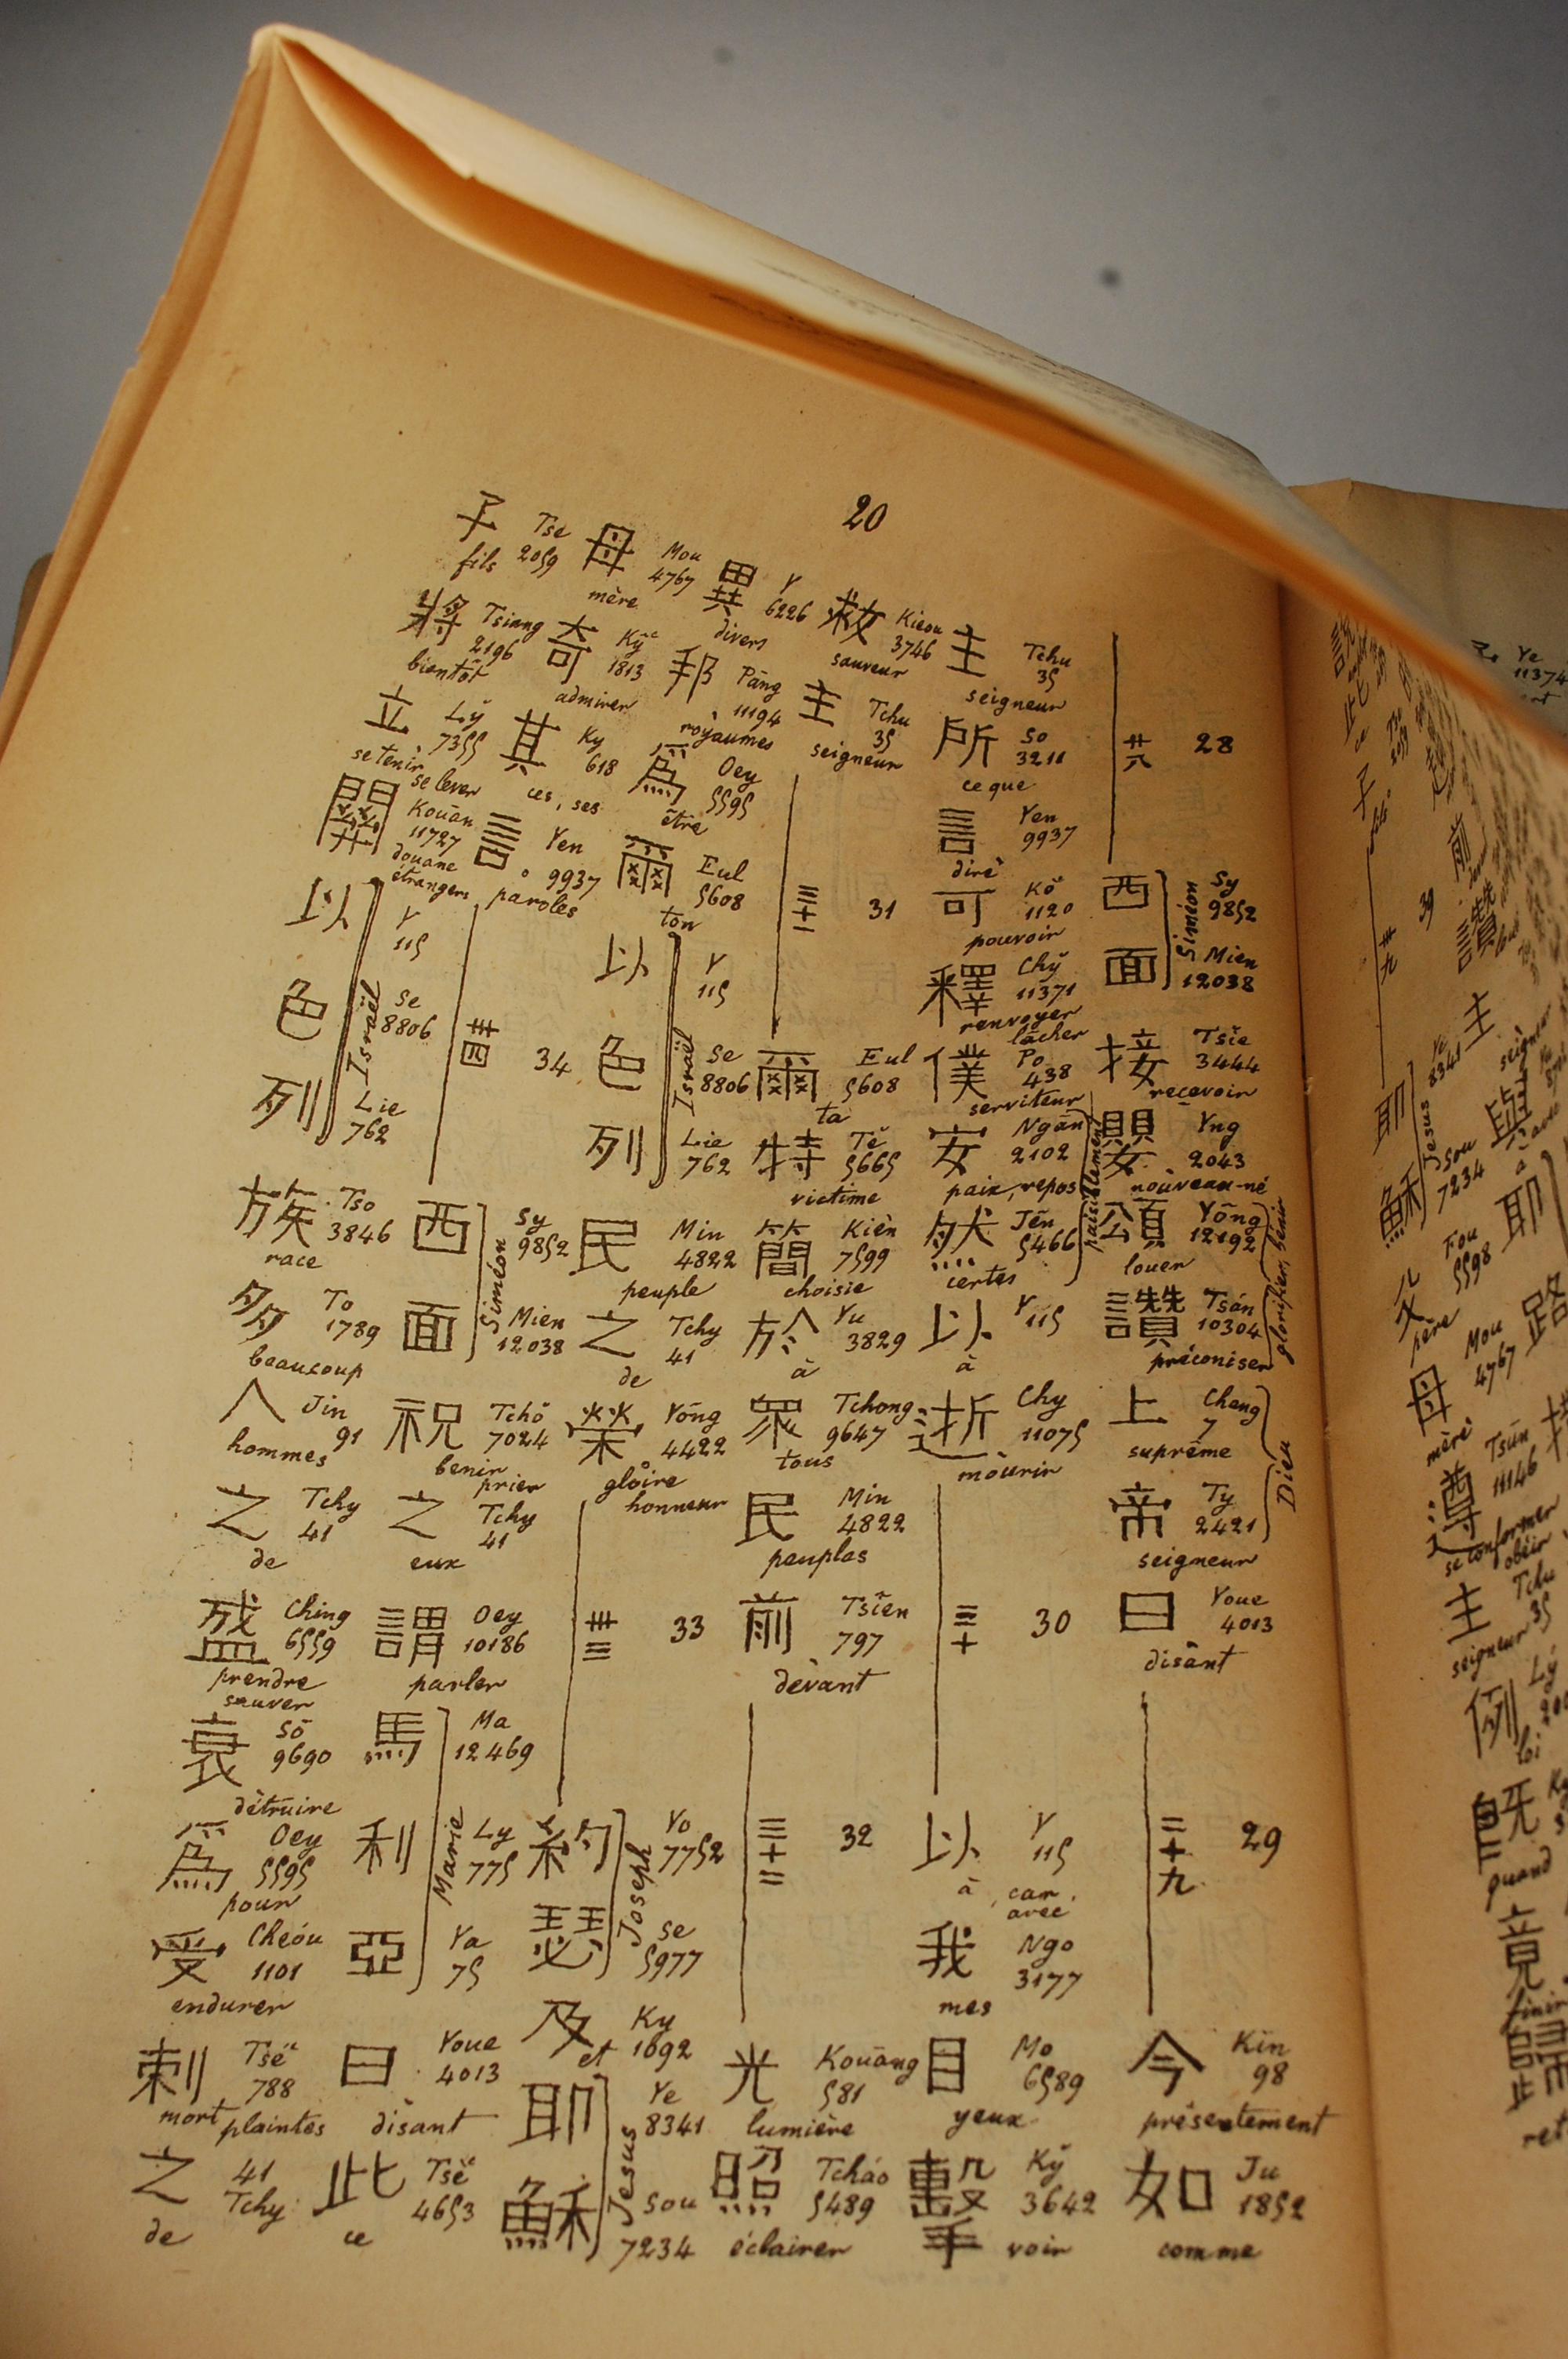 20
廿八 28
西 Sy 9852
面 Mien 12038
Siméon
接 Tsie 3444 recevoir
嬰 Yng 2043 nouveau-né
頌 Yōng 12192 louer
讚 Tsán 10304 préconiser
glorifier, bénir
上 Chang 7 suprême
帝 Ty 2421 seigneur
Dieu
曰 Youe 4013 disant
二十九 29
今 Kin 98 présentement
如 Ju 1852 comme
主 Tchu 35 seigneur
所 So 3211 ce que
言 Yen 9937 dire
可 Kŏ 1120 pouvoir
釋 Chy̆ 11371 renvoyer lâcher
僕 Po 438 serviteur
安 Ngān 2102 paix, repos
然 Jên 5466 certes
paisiblement
以 Y 115 à
逝 Chy 11075 mourir
三十 30
以 Y 115 à car avec
我 Ngo 3177 mes
目 Mo 6589 yeux
擊 Ky̆ 3642 voir
救 Kieou 3746 sauveur
主 Tchu 35 seigneur
三十一 31
爾 Eul 5608 ta
特 Tĕ 5665 victime
簡 Kièn 7599 choisie
於 Yu 3829 à
眾 Tchong 9647 tous
民 Min 4822 peuples
前 Tsien 797 devant
三十二 32
光 Kouāng 581 lumière
照 Tcháo 5489 éclairer
異 Y 6226 divers
邦 Pāng 11194 royaumes
為 Oey 5595 être
爾 Eul 5608 ton
以 Y 115
色 Se 8806
列 Lie 762
Israël
民 Min 4822 peuple
之 Tchy 41 de
榮 Yōng 4422 gloire honneur
卅三 33
約 Yo 7752
瑟 Se 5977
Joseph
及 Ky 1092 et
耶 Ye 8341
穌 Sou 7234
Jesus
母 Mou 4767 mère
奇 Ky 1813 admirer
其 Ky 618 ces, ses
言 Yen 9937 paroles
卅四 34
西 Sy 9852
面 Mien 12038
Siméon
祝 Tchŏ 7024 benir prier
之 Tchy 41 eux
謂 Oey 10186 parler
馬 Ma 12469
利 Ly 775
亞 Ya 75
Marie
曰 Youe 4013 disant
此 Tsĕ 4653 ce
子 Tse 2059 fils
將 Tsiang 2196 bientôt
立 Ly̆ 7355 se tenir se lever
關 Kouān 11727 douane étrangers
以 Y 115
色 Se 8806
列 Lie 762
Israël
族 Tso 3846 race
多 To 1789 beaucoup
人 Jin 91 hommes
之 Tchy 41 de
盛 Ching 6559 prendre sauver
衰 Sō 9690 détruire
為 Oey 5595 pour
受 Cheóu 1101 endurer
刺 Tsĕ 788 mort plaintes
之 41 Tchy de
39
卅九
主 seigneur
耶 Ye 8341
穌 Sou 7234
Jesus
父 Fou 5598 père
母 Mou 4767 mère
遵 Tsūn 11146 se conformer obéir
主 Tchu 35 seigneur
例 Ly loi
既 quand
竟 finir